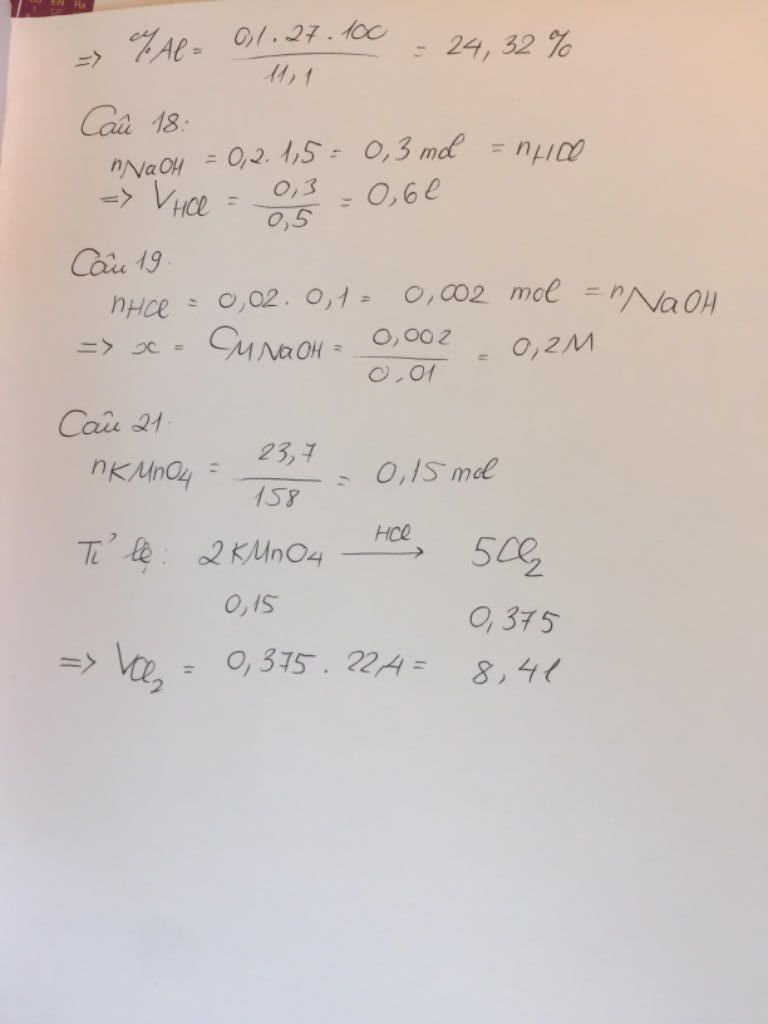 => % Al = 0,1 . 27 . 100 / 11,1 = 24,32 %
Câu 18:
nNaOH = 0,2 . 1,5 = 0,3 mol = nHCl
=> VHCl = 0,3 / 0,5 = 0,6 l
Câu 19:
nHCl = 0,02 . 0,1 = 0,002 mol = nNaOH
=> x = CM NaOH = 0,002 / 0,01 = 0,2M
Câu 21:
nKMnO4 = 23,7 / 158 = 0,15 mol
Tỉ lệ: 2KMnO4 —HCl→ 5Cl2
0,15 0,375
=> VCl2 = 0,375 . 22,4 = 8,4 l